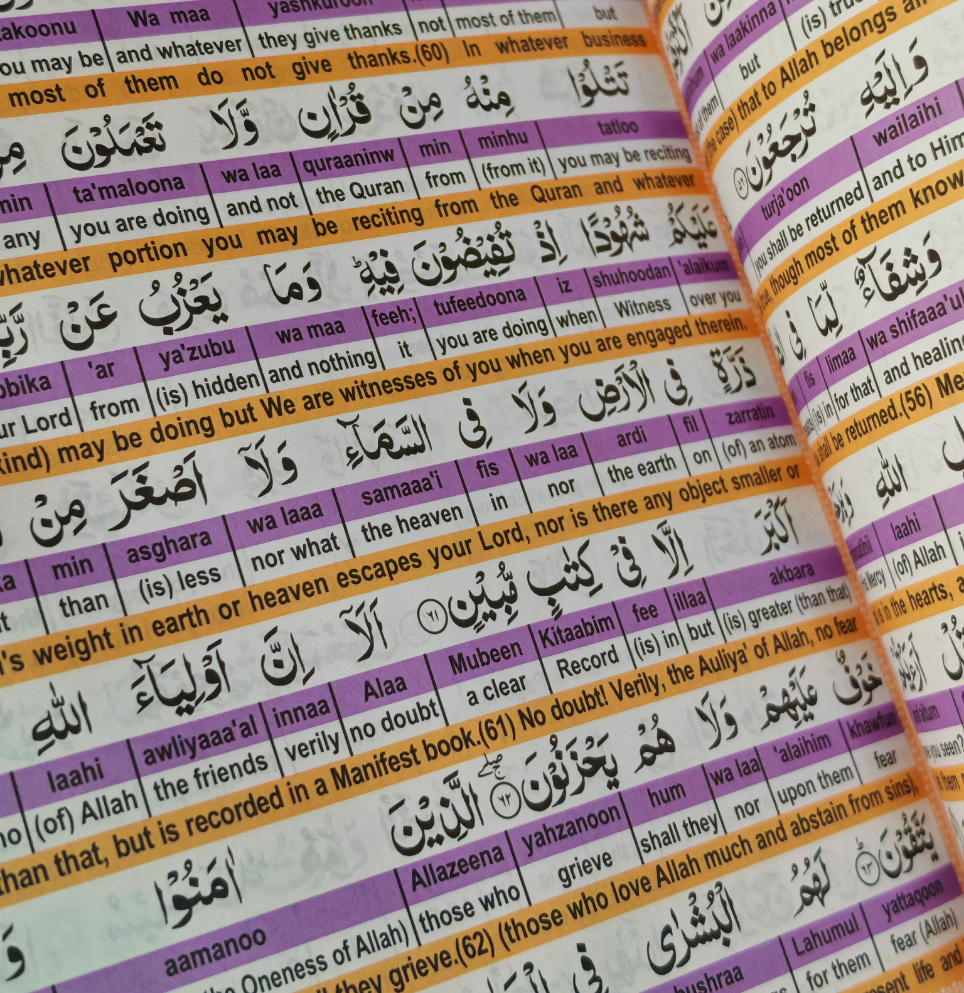 akoonu Wa maa yashkuroon
ou may be and whatever they give thanks not most of them but
most of them do not give thanks.(60) In whatever business
تَتْلُوْا مِنْهُ مِنْ قُرْاٰنٍ وَّلَا تَعْمَلُوْنَ مِنْ
min ta'maloona wa laa quraaninw min minhu tatloo
any you are doing and not the Quran from (from it) you may be reciting
whatever portion you may be reciting from the Quran and whatever
عَلَيْكُمْ شُهُوْدًا اِذْ تُفِيْضُوْنَ فِيْهِ ؕ وَمَا يَعْزُبُ عَنْ رَّبِّ
obika 'ar ya'zubu wa maa feeh; tufeedoona iz shuhoodan 'alaikum
ur Lord from (is) hidden and nothing it you are doing when Witness over you
kind) may be doing but We are witnesses of you when you are engaged therein.
ذَرَّةٍ فِى الْاَرْضِ وَلَا فِى السَّمَآءِ وَلَاۤ اَصْغَرَ مِنْ
min asghara wa laaa samaaa'i fis wa laa ardi fil zarratin
than (is) less nor what the heaven in nor the earth on (of) an atom
's weight in earth or heaven escapes your Lord, nor is there any object smaller or
اَكْبَرَ اِلَّا فِىْ كِتٰبٍ مُّبِيْنٍ ۝٦١ اَلَاۤ اِنَّ اَوْلِيَآءَ اللّٰهِ
laahi awliyaaa'al innaa Alaa Mubeen Kitaabim fee illaa akbara
no (of) Allah the friends verily no doubt a clear Record (is) in but (is) greater (than that)
than that, but is recorded in a Manifest book.(61) No doubt! Verily, the Auliya' of Allah, no fear
خَوْفٌ عَلَيْهِمْ وَلَا هُمْ يَحْزَنُوْنَ ۝٦٢ الَّذِيْنَ اٰمَنُوْا وَ
aamanoo Allazeena yahzanoon hum wa laa 'alaihim khawfun
he Oneness of Allah) those who grieve shall they nor upon them fear
they grieve.(62) (those who love Allah much and abstain from sins),
يَتَّقُوْنَ ۝٦٣ لَهُمُ الْبُشْرٰى فِى
bushraa Lahumul yattaqoon
for them fear (Allah)
present life and
wa laakinna
but (is) true
the case) that to Allah belongs all
وَاِلَيْهِ تُرْجَعُوْنَ ۝٥٦
turja'oon wailaihi
you shall be returned and to Him
true, though most of them know
وَشِفَآءٌ لِّمَا فِى
fis limaa wa shifaaa'ul
(is) in (for that and healing
shall be returned.(56)
اللّٰهِ
laahi
Mercy (of) Allah
is in the hearts, a